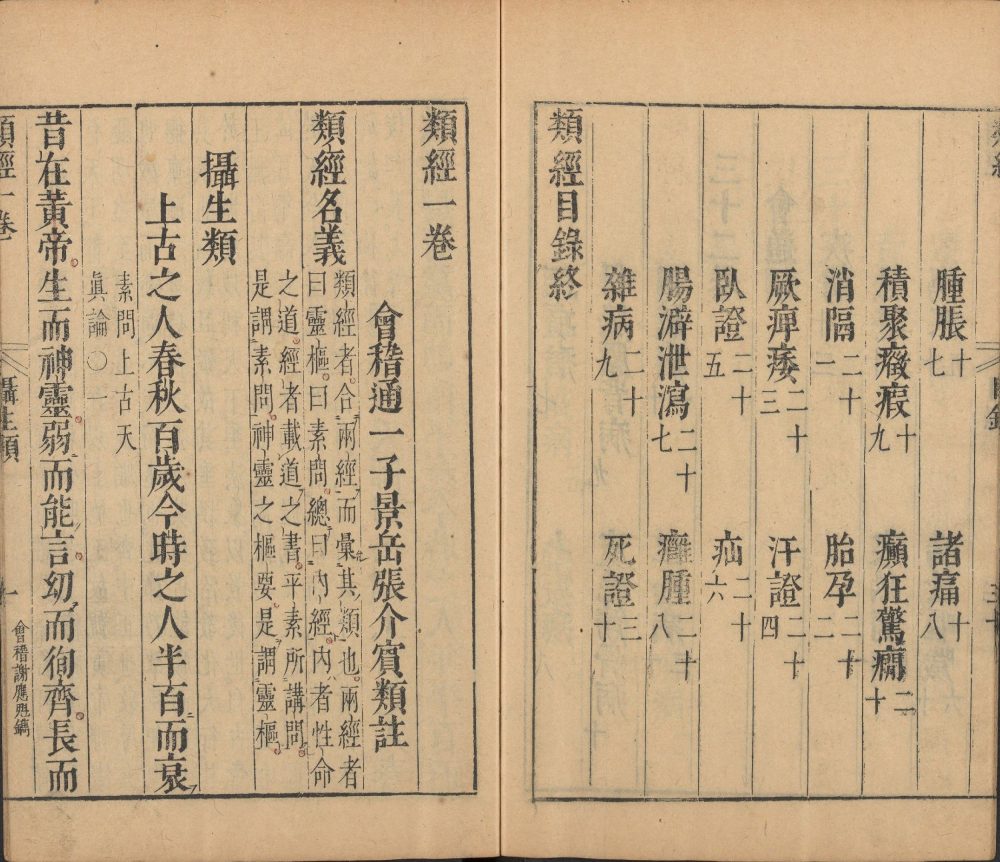 腫脹十七　諸痛十八
積聚癥瘕十九　癲狂驚癇二十
消隔二十一　胎孕二十二
厥痺痿二十三　汗證二十四
臥證二十五　疝二十六
腸澼泄瀉二十七　癰腫二十八
雜病二十九　死證三十
類經目錄終
類經一卷
會稽通一子景岳張介賓類註
類經名義　類經者合兩經而彙其類也兩經者
曰靈樞曰素問總曰內經內者性命
之道經者載道之書平素所講問
是謂素問神靈之樞要是謂靈樞
攝生類
上古之人春秋百歲今時之人半百而衰
素問上古天
眞論〇一
昔在黃帝生而神靈弱而能言幼而徇齊長而
類經一卷　攝生類　一　會稽謝應魁鐫